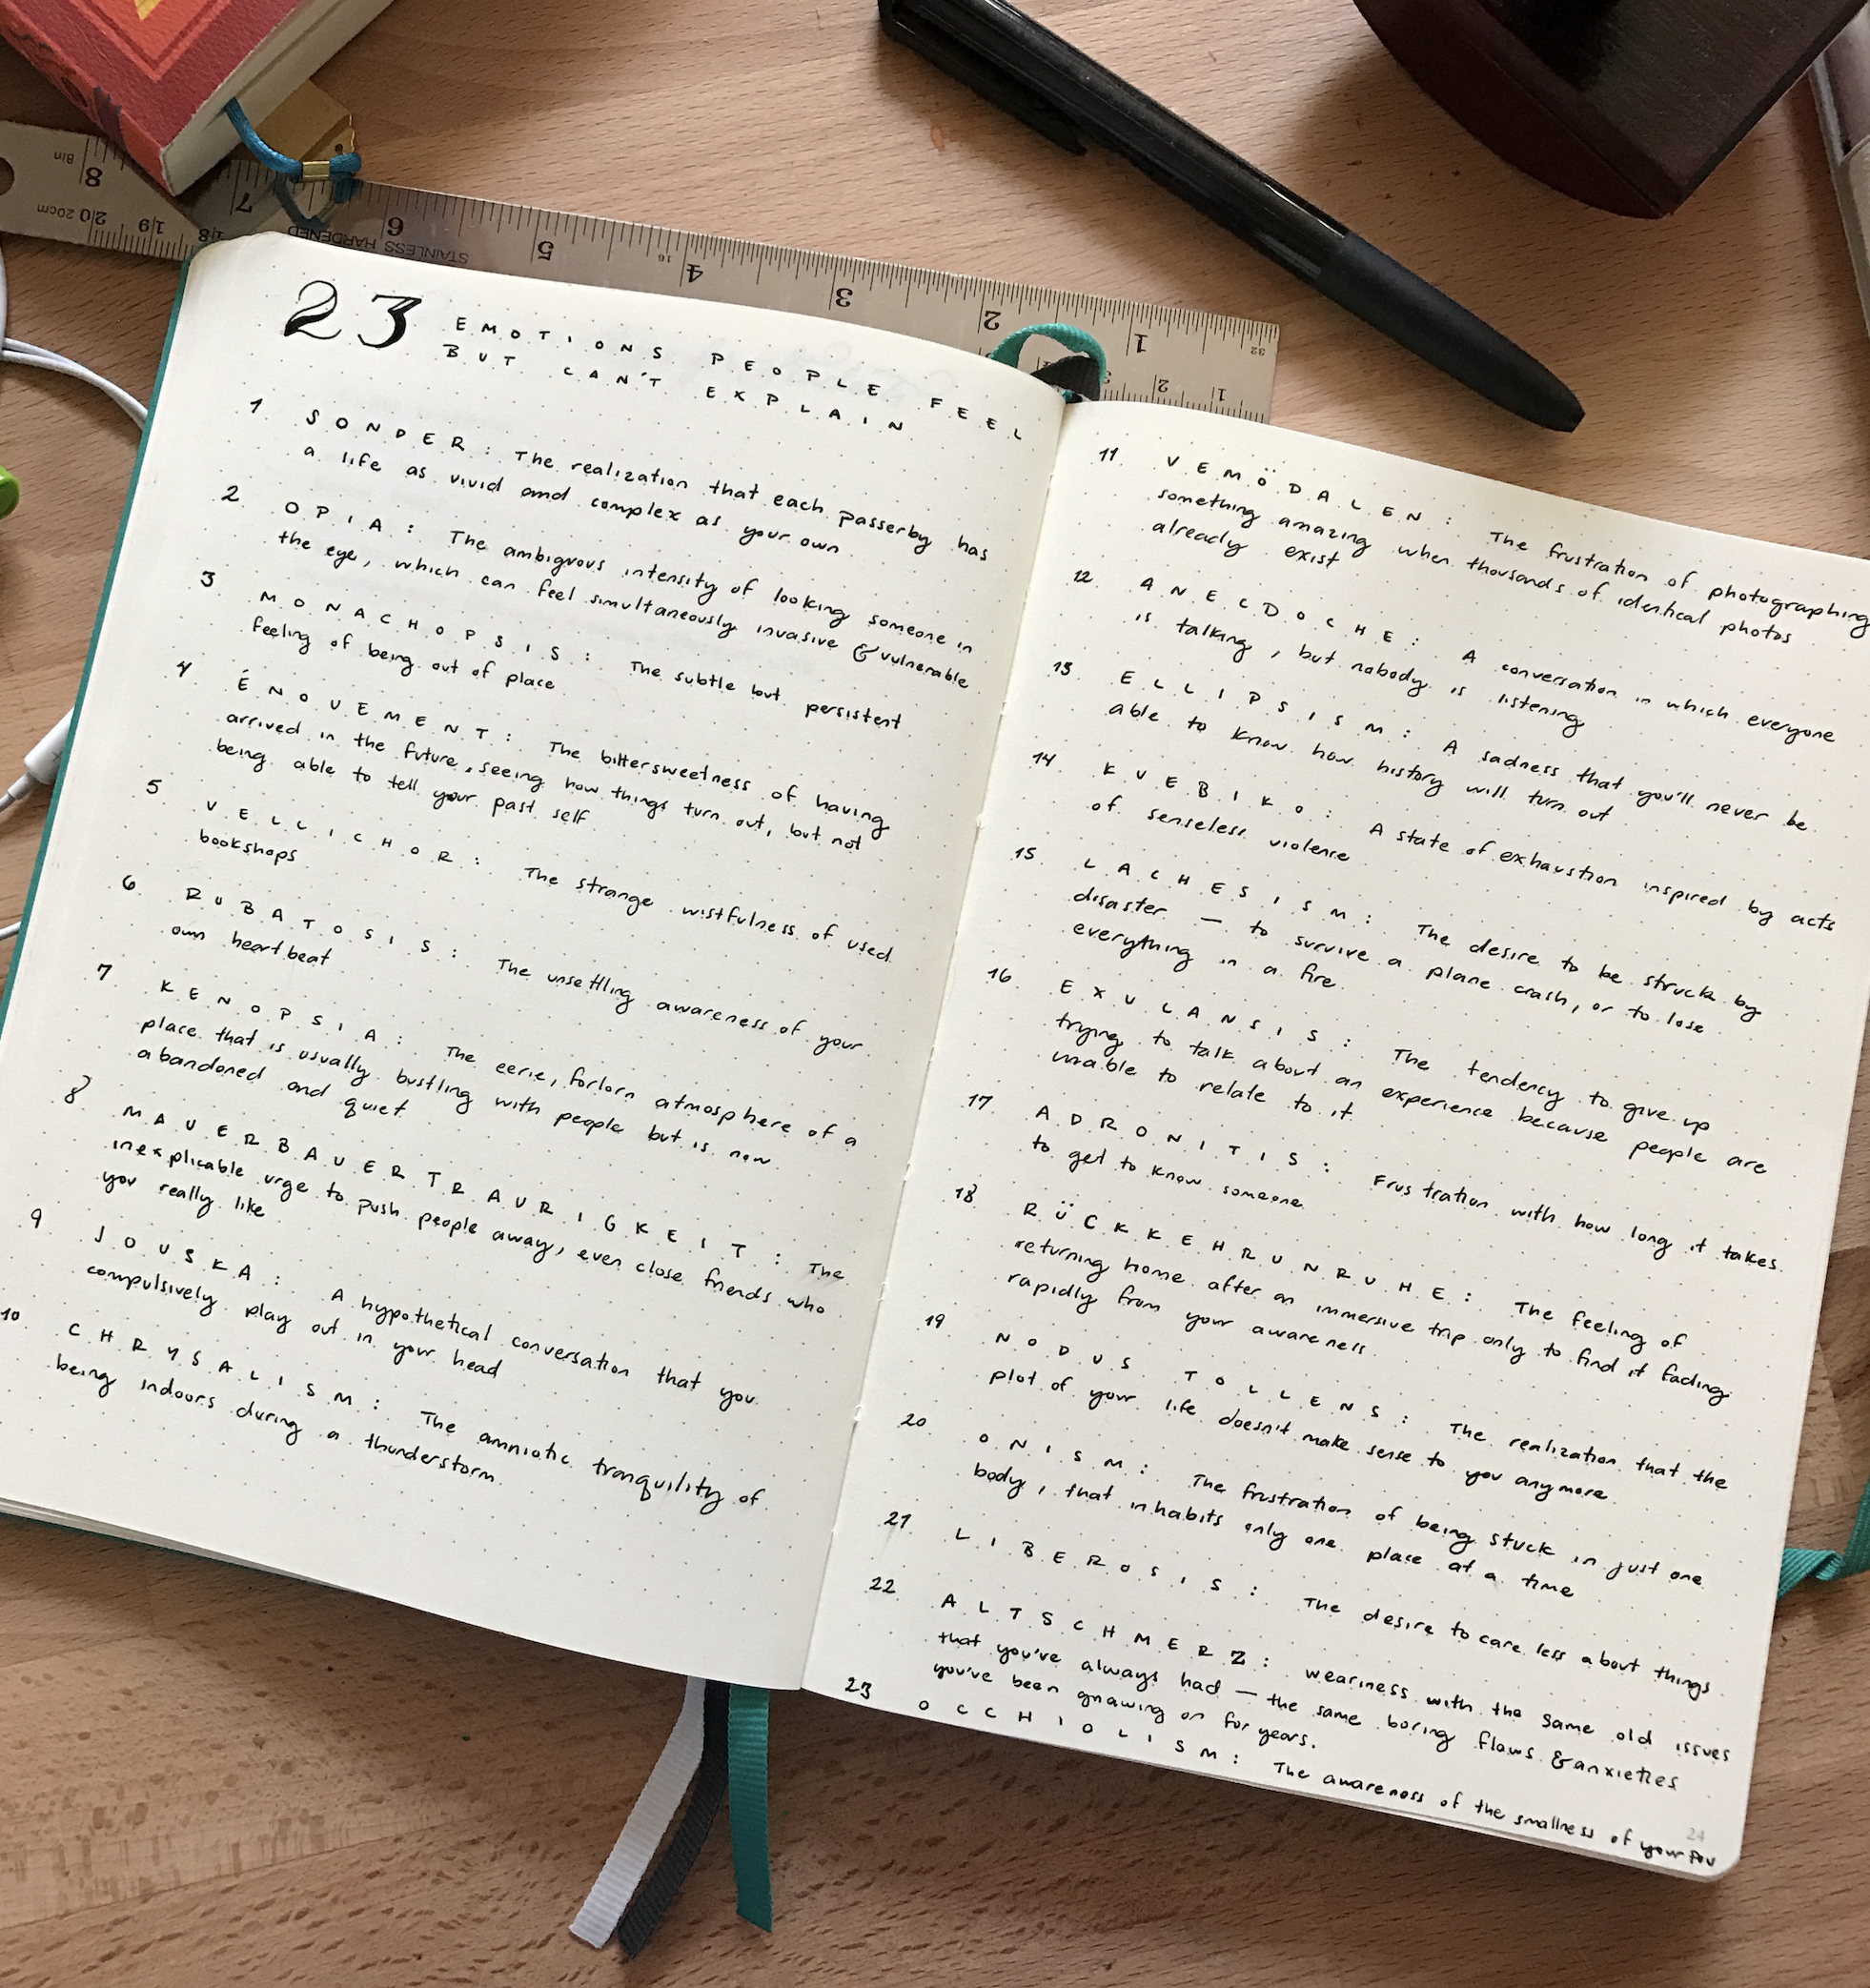 8in 8 7 6 5 4 3 2 1 32
20cm 20 19 18 STAINLESS HARDENED 16 2 1
23 EMOTIONS PEOPLE FEEL
BUT CAN'T EXPLAIN
1 SONDER: The realization that each passerby has
a life as vivid and complex as your own
2 OPIA: The ambiguous intensity of looking someone in
the eye, which can feel simultaneously invasive & vulnerable
3 MONACHOPSIS: The subtle but persistent
feeling of being out of place
4 ÉNOUEMENT: The bittersweetness of having
arrived in the future, seeing how things turn out, but not
being able to tell your past self
5 VELLICHOR: The strange wistfulness of used
bookshops
6 RUBATOSIS: The unsettling awareness of your
own heartbeat
7 KENOPSIA: The eerie, forlorn atmosphere of a
place that is usually bustling with people but is now
abandoned and quiet
8 MAUERBAUERTRAURIGKEIT: The
inexplicable urge to push people away, even close friends who
you really like
9 JOUSKA: A hypothetical conversation that you
compulsively play out in your head
10 CHRYSALISM: The amniotic tranquility of
being indoors during a thunderstorm
11 VEMÖDALEN: The frustration of photographing
something amazing when thousands of identical photos
already exist
12 ANECDOCHE: A conversation in which everyone
is talking, but nobody is listening
13 ELLIPSISM: A sadness that you'll never be
able to know how history will turn out
14 KUEBIKO: A state of exhaustion inspired by acts
of senseless violence
15 LACHESISM: The desire to be struck by
disaster — to survive a plane crash, or to lose
everything in a fire
16 EXULANSIS: The tendency to give up
trying to talk about an experience because people are
unable to relate to it
17 ADRONITIS: Frustration with how long it takes
to get to know someone
18 RÜCKKEHRUNRUHE: The feeling of
returning home after an immersive trip only to find it fading
rapidly from your awareness
19 NODUS TOLLENS: The realization that the
plot of your life doesn't make sense to you anymore
20 ONISM: The frustration of being stuck in just one
body, that inhabits only one place at a time
21 LIBEROSIS: The desire to care less about things
22 ALTSCHMERZ: weariness with the same old issues
that you've always had — the same boring flaws & anxieties
you've been gnawing on for years.
23 OCCHIOLISM: The awareness of the smallness of your
24